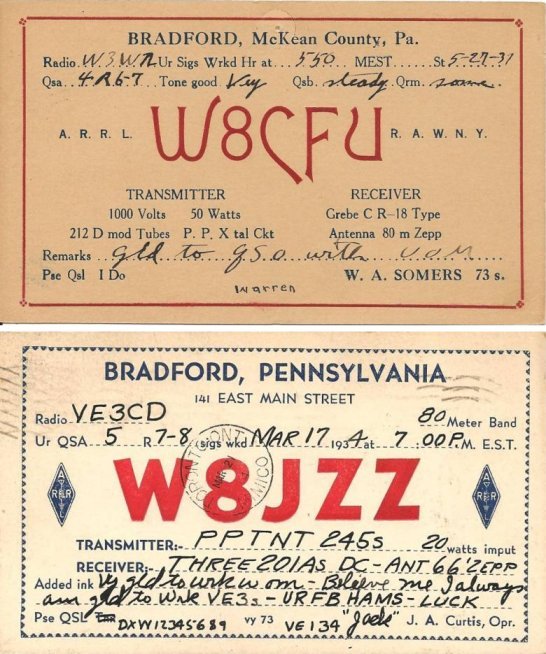 BRADFORD, McKean County, Pa.
Radio W3WN Ur Sigs Wrkd Hr at 550 MEST. St 5-27-31
Qsa. 4 R 6-7 Tone good Vey Qsb. steady Qrm. some.
A. R. R. L. W8CFU R. A. W. N. Y.
TRANSMITTER RECEIVER
1000 Volts 50 Watts Grebe C R-18 Type
212 D mod Tubes P. P. X tal Ckt Antenna 80 m Zepp
Remarks gld to QSO with U O M
Pse Qsl I Do W. A. SOMERS 73 s.
Warren
BRADFORD, PENNSYLVANIA
141 EAST MAIN STREET
Radio VE3CD 80 Meter Band
Ur QSA 5 R 7-8 sigs wkd MAR 17 1934 at 7:00 P.M. E.S.T.
TORONTO
MIMICO
W8JZZ
A R R L
A R R L
TRANSMITTER:- PPTNT 245s 20 watts imput
RECEIVER:- THREE 201As DC-ANT 66' ZEPP
Added ink Vy gld to wrk u om - Believe me I always
am gld to wrk VE3s - UR FB HAMS - LUCK
Pse QSL DXW12345689 vy 73 VE134 "Jack" J. A. Curtis, Opr.